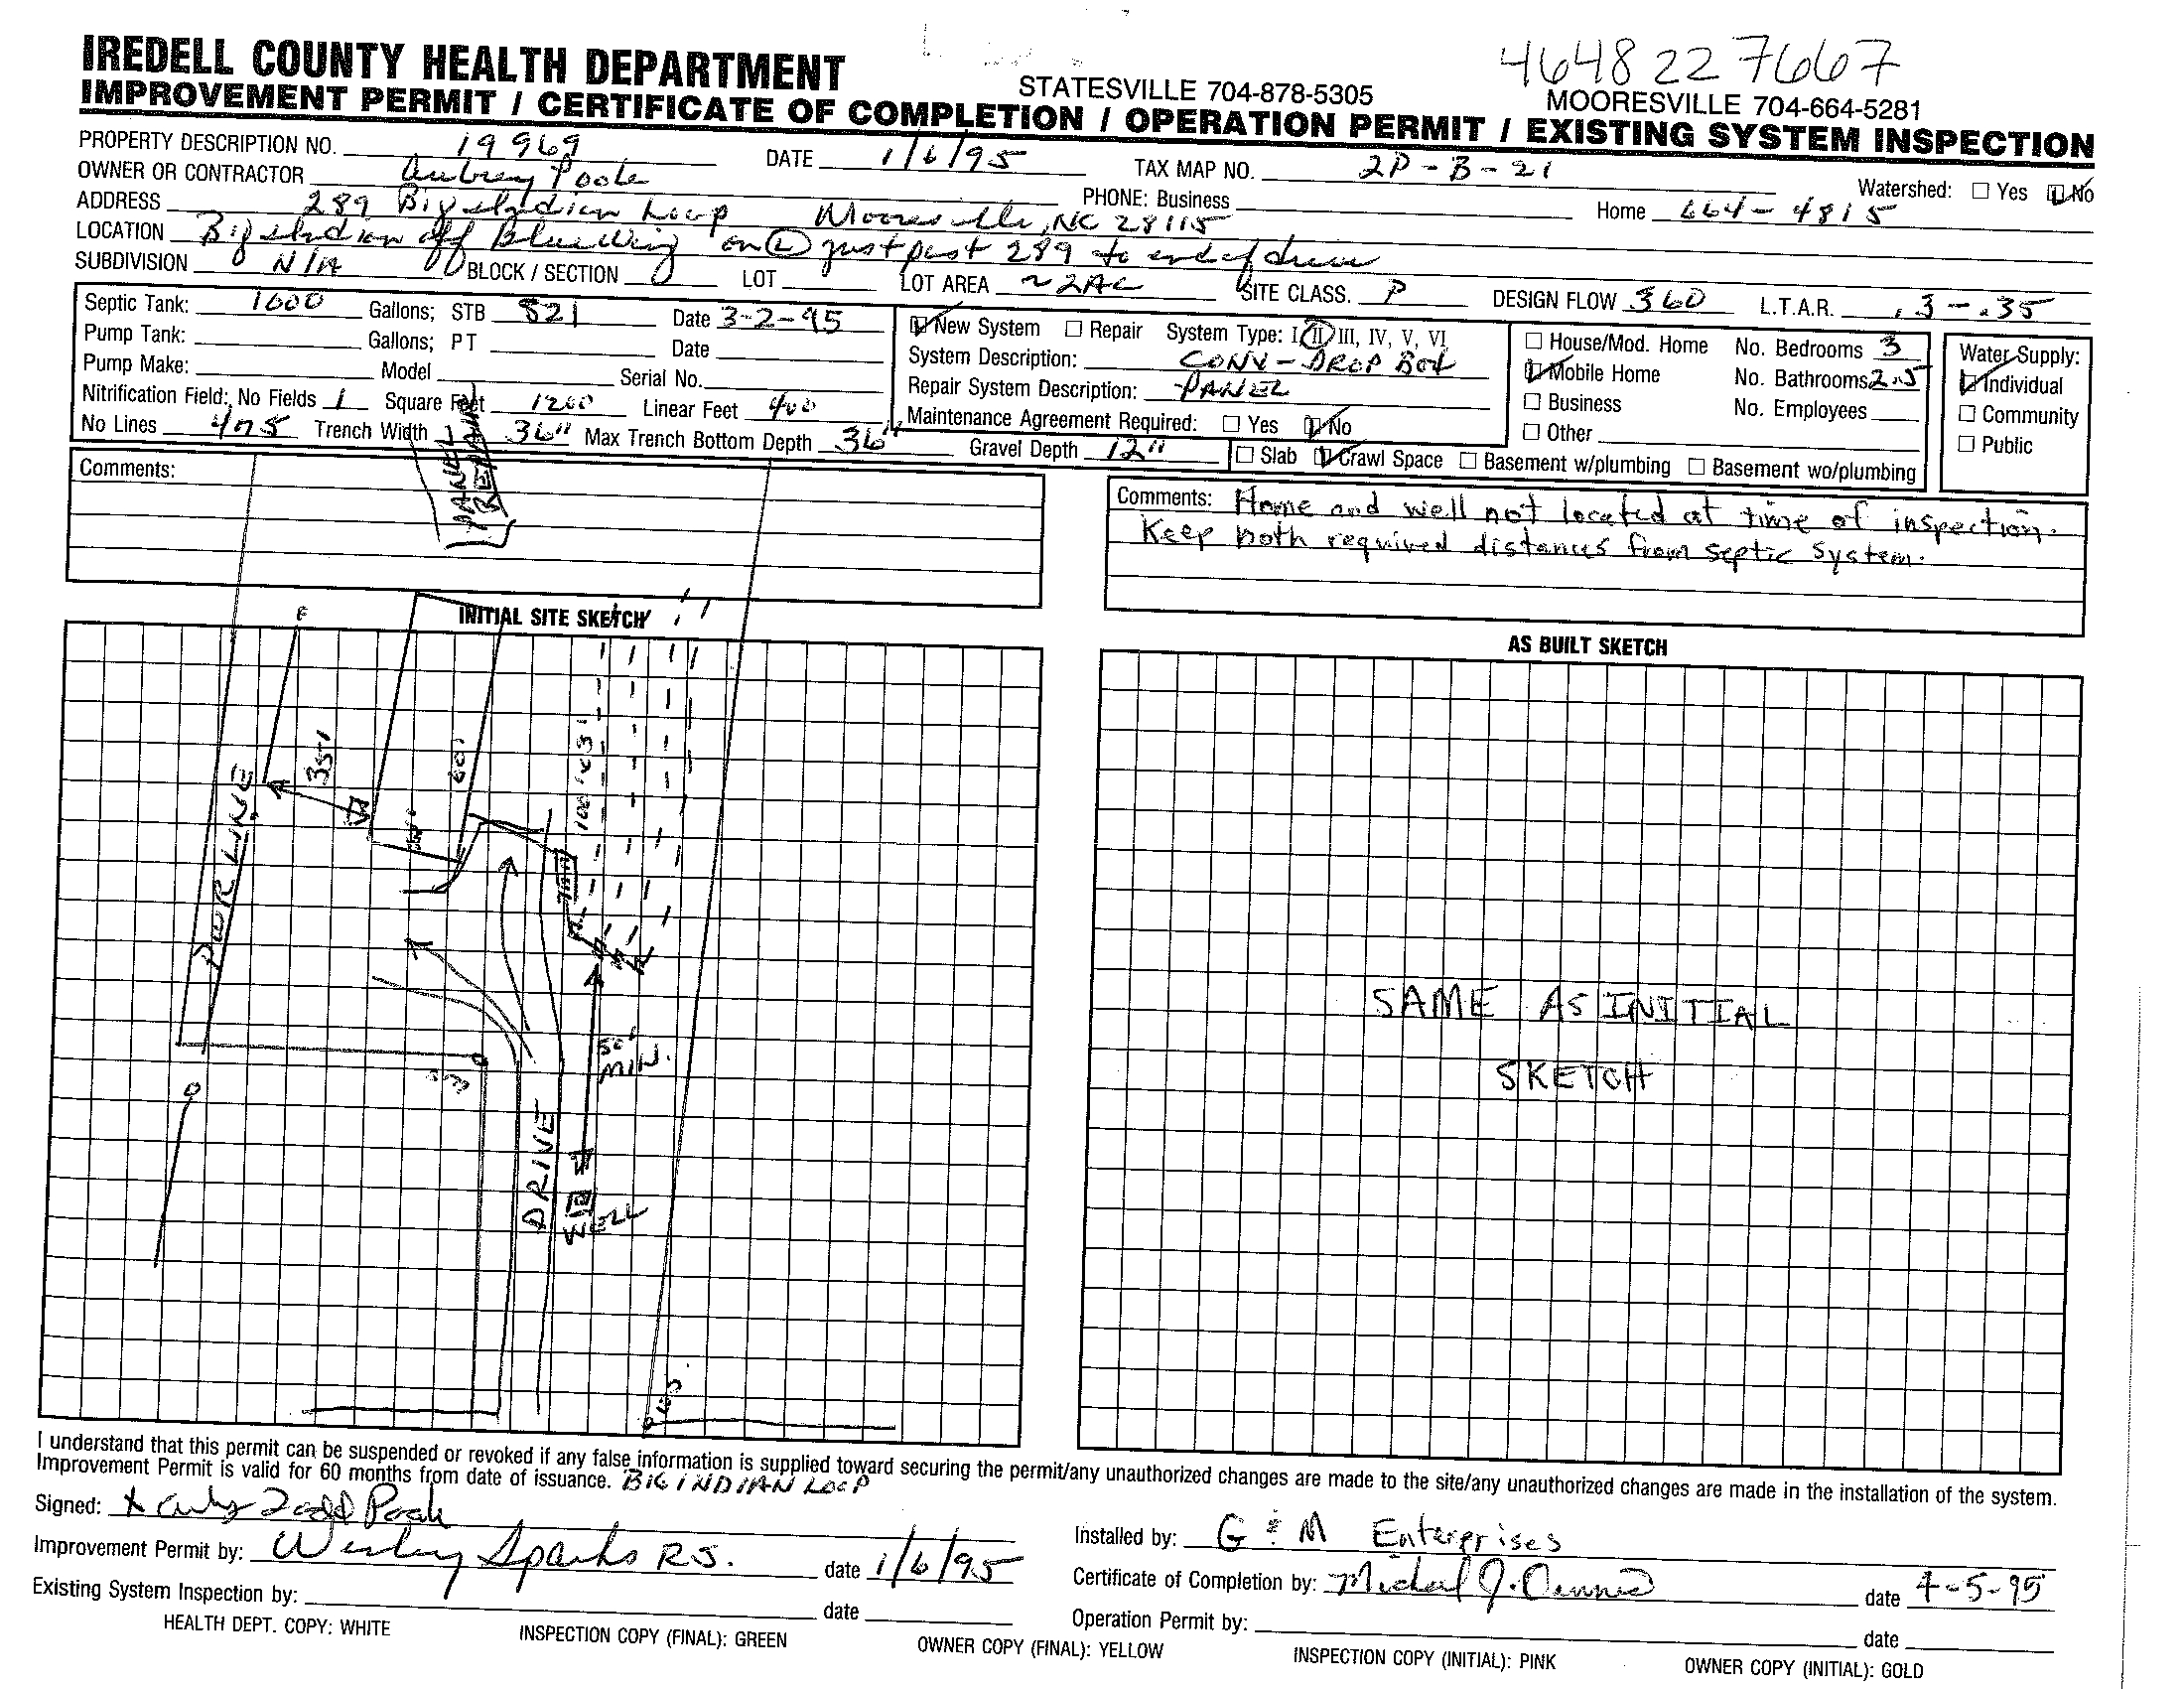 4648227667
IREDELL COUNTY HEALTH DEPARTMENT STATESVILLE 704-878-5305 MOORESVILLE 704-664-5281
IMPROVEMENT PERMIT / CERTIFICATE OF COMPLETION / OPERATION PERMIT / EXISTING SYSTEM INSPECTION
PROPERTY DESCRIPTION NO. 19969 DATE 1/6/95 TAX MAP NO. 2P-B-21
OWNER OR CONTRACTOR Aubrey Poole PHONE: Business Watershed: ☐ Yes ☑ No
ADDRESS 289 Big Indian Loop Mooresville, NC 28115 Home 664-4815
LOCATION Big Indian off Bluewing on Ⓛ just past 289 to end of drive
SUBDIVISION N/A BLOCK / SECTION LOT LOT AREA ~2AC SITE CLASS. P DESIGN FLOW 360 L.T.A.R. .3-.35
Septic Tank: 1000 Gallons; STB 821 Date 3-2-95
Pump Tank: Gallons; PT Date
Pump Make: Model Serial No.
Nitrification Field: No Fields 1 Square Feet 1200 Linear Feet 400
No Lines 4 or 5 Trench Width 36" Max Trench Bottom Depth 36" Gravel Depth 12"
☑ New System ☐ Repair System Type: I, II, III, IV, V, VI
System Description: CONV-DROP BOX
Repair System Description: PANEL
Maintenance Agreement Required: ☐ Yes ☑ No
☐ House/Mod. Home No. Bedrooms 3
☑ Mobile Home No. Bathrooms 2.5
☐ Business No. Employees
☐ Other
☐ Slab ☑ Crawl Space ☐ Basement w/plumbing ☐ Basement wo/plumbing
Water Supply:
☑ Individual
☐ Community
☐ Public
Comments:
PANEL
REPAIR
Comments: Home and well not located at time of inspection.
Keep both required distances from septic system.
INITIAL SITE SKETCH
AS BUILT SKETCH
PWR LINE
35'
60'
100'
50'
MIN.
DRIVE
WELL
SAME AS INITIAL
SKETCH
I understand that this permit can be suspended or revoked if any false information is supplied toward securing the permit/any unauthorized changes are made to the site/any unauthorized changes are made in the installation of the system.
Improvement Permit is valid for 60 months from date of issuance. BIG INDIAN LOOP
Signed: x Todd Poole
Improvement Permit by: Wesley Sparks R.S. date 1/6/95
Existing System Inspection by: date
Installed by: G & M Enterprises
Certificate of Completion by: Michael J. date 4-5-95
Operation Permit by: date
HEALTH DEPT. COPY: WHITE INSPECTION COPY (FINAL): GREEN OWNER COPY (FINAL): YELLOW INSPECTION COPY (INITIAL): PINK OWNER COPY (INITIAL): GOLD